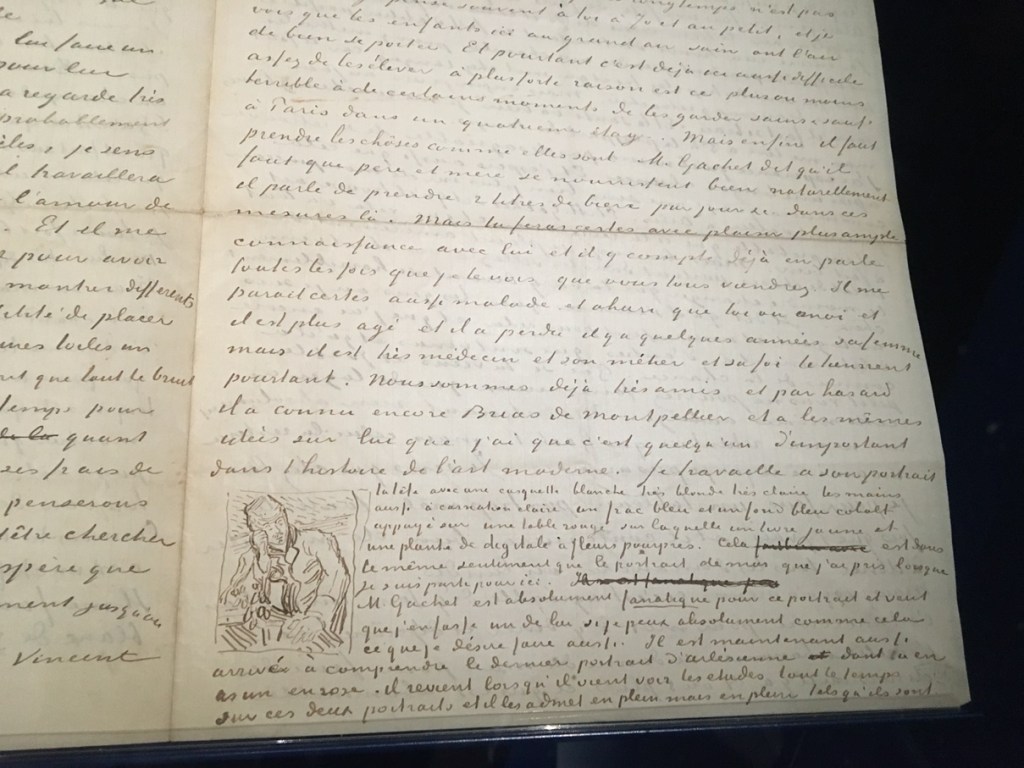 lui faire un
pour leur
a regarde très
probablement
je sens
il travaillera
l'amour de
Et il me
pour avoir
montrer differents
de placer
toiles un
que tout le bruit
temps pour
de la quant
ses frais de
penserons
être chercher
espère que
Vincent
n'est pas
souvent à toi à Jo et au petit, et je
vois que les enfants ici au grand air sain ont l'air
de bien se porter. Et pourtant c'est déjà ici aussi difficile
assez de les élever à plus forte raison est ce plus ou moins
terrible à de certains moments de les garder sains & saufs
à Paris dans un quatrieme étage. Mais enfin il faut
prendre les chôses comme elles sont. M. Gachet dit qu'il
faut que père et mère se nourrissent bien naturellement
il parle de prendre 2 litres de bière par jour &c. dans ces
mesures là. Mais tu feras certes avec plaisir plus ample
connaissance avec lui et il y compte déjà en parle
toutes les fois que je le vois que vous tous viendrez. Il me
parait certes aussi malade et ahuri que toi ou moi et
il est plus agé et il a perdu il y a quelques années sa femme
mais il est très médecin et son métier et sa foi le tiennent
pourtant. Nous sommes déjà très amis et par hasard
il a connu encore Brias de Montpellier et a les mêmes
idées sur lui que j'ai que c'est quelqu'un d'important
dans l'histoire de l'art moderne. Je travaille a son portrait
la tête avec une casquette blanche très blonde très claire les mains
aussi à carnation claire un frac bleu et un fond bleu cobalt
appuyé sur une table rouge sur laquelle un livre jaune et
une plante de digitale à fleurs pourpres. Cela est dans
le même sentiment que le portrait de moi que j'ai pris lorsque
je suis parti pour ici.
M. Gachet est absolument fanatique pour ce portrait et veut
que j'en fasse un de lui si je peux absolument comme cela
ce que je désire faire aussi. Il est maintenant aussi
arrivé à comprendre le dernier portrait d'arlésienne et dont tu en
as un en rose. il revient lorsqu'il vient voir les etudes tout le temps
sur ces deux portraits et il les admet en plein mais en plein tels qu'ils sont